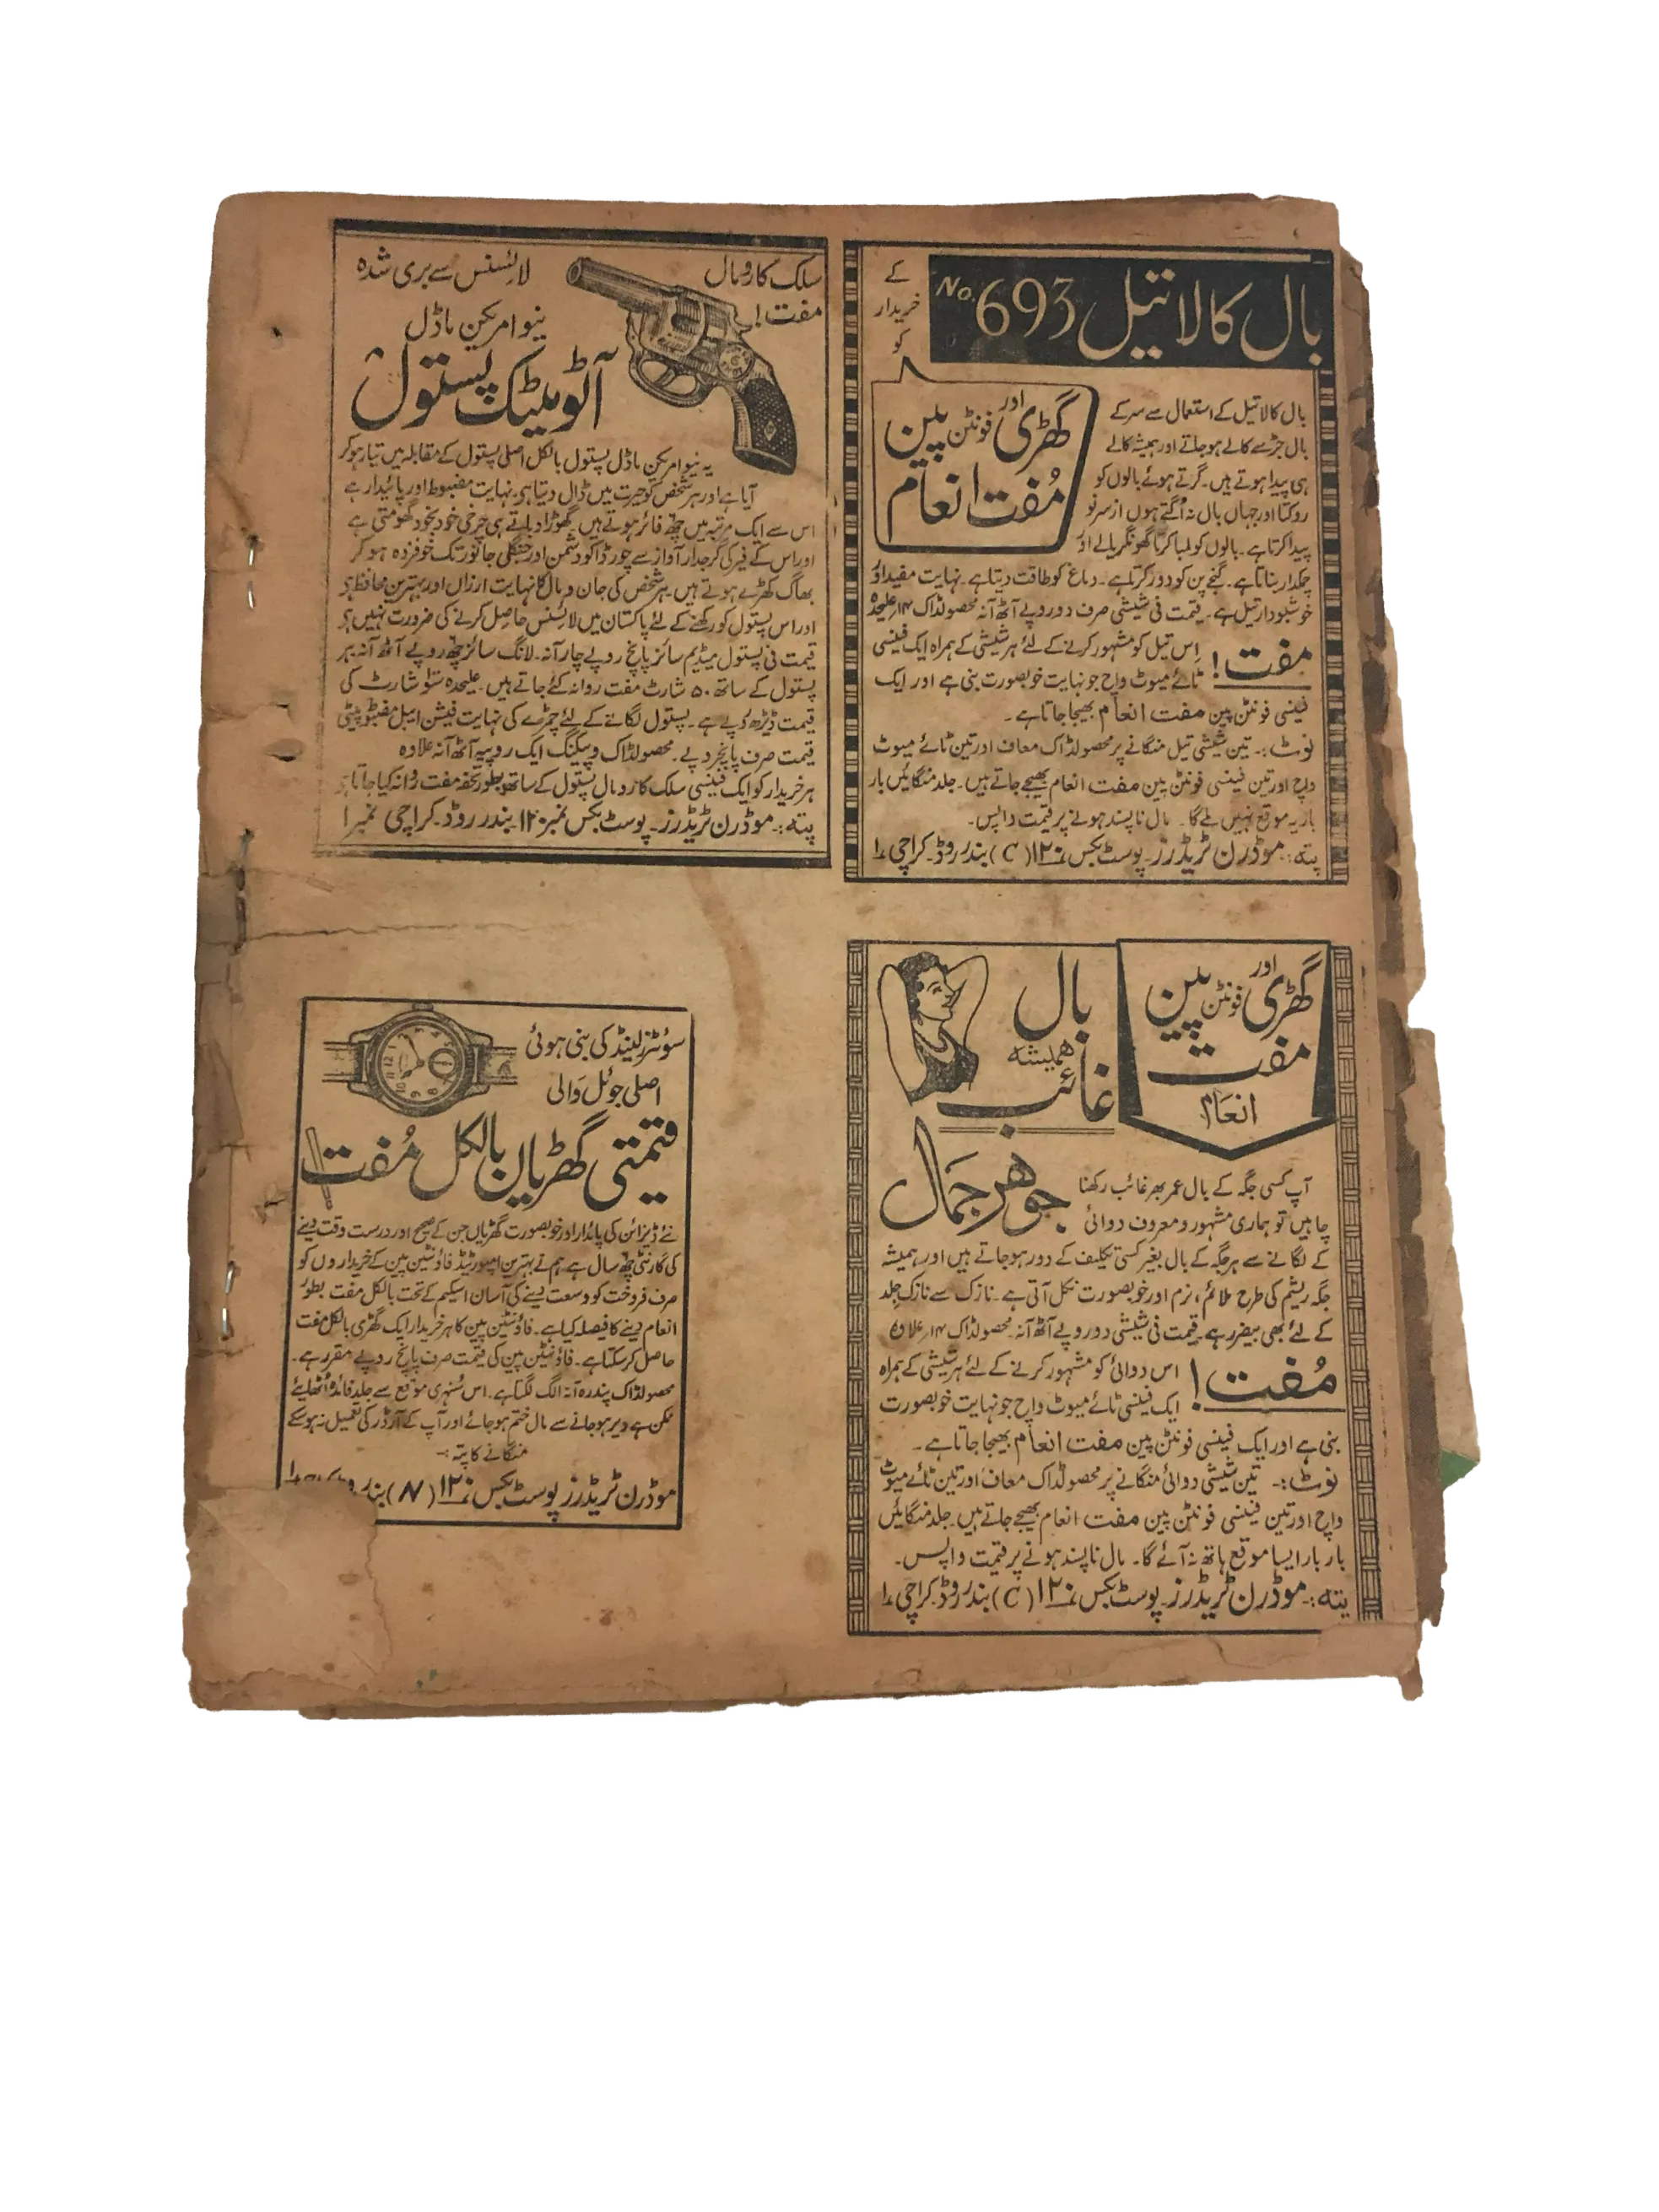 بال کالا تیل No. 693
کے
خریدار
کو
گھڑی اور فونٹن پین
مُفت انعام
بال کالا تیل کے استعمال سے سر کے
بال جڑ سے کالے ہو جاتے اور ہمیشہ کالے
ہی پیدا ہوتے ہیں۔ گرتے ہوئے بالوں کو
روکتا اور جہاں بال نہ اُگتے ہوں از سرِ نو
پیدا کرتا ہے۔ بالوں کو لمبا کرتا گھونگریالے اور
چمکدار بناتا ہے۔ گنجے پن کو دور کرتا ہے۔ دماغ کو طاقت دیتا ہے۔ نہایت مفید اور
خوشبودار تیل ہے۔ قیمت فی شیشی صرف دو روپے آٹھ آنہ محصولڈاک ۱۴؍ علیحدہ
مفت! اِس تیل کو مشہور کرنے کے لئے ہر شیشی کے ہمراہ ایک فینسی
ٹائے میوٹ واچ جو نہایت خوبصورت بنی ہے اور ایک
فینسی فونٹن پین مفت انعام بھیجا جاتا ہے۔
نوٹ:۔ تین شیشی تیل منگانے پر محصولڈاک معاف اور تین ٹائے میوٹ
واچ اور تین فینسی فونٹن پین مفت انعام بھیجے جاتے ہیں۔ جلد منگائیں بار
بار یہ موقع نہیں ملے گا۔ مال ناپسند ہونے پر قیمت واپس۔
پتہ:۔ موڈرن ٹریڈرز۔ پوسٹ بکس نمبر ۱۲۰ (C) بندر روڈ۔ کراچی ۱
سلک کا رومال
مفت!
لائسنس سے بری شدہ
نیو امریکن ماڈل
آٹومیٹک پستول
یہ نیو امریکن ماڈل پستول بالکل اصلی پستول کے مقابلہ میں تیار ہو کر
آیا ہے اور ہر شخص کو حیرت میں ڈال دیتا ہے۔ نہایت مضبوط اور پائیدار ہے
اس سے ایک مرتبہ میں چھ فائر ہوتے ہیں۔ گھوڑا دباتے ہی چرخی خود بخود گھومتی ہے
اور اس کے فیر کی گرجدار آواز سے چور ڈاکو دشمن اور جنگلی جانور تک خوفزدہ ہو کر
بھاگ کھڑے ہوتے ہیں۔ ہر شخص کی جان و مال کا نہایت ارزاں اور بہترین محافظ ہے
اور اس پستول کو رکھنے کے لئے پاکستان میں لائسنس حاصل کرنے کی ضرورت نہیں ہے
قیمت فی پستول میڈیم سائز پانچ روپے چار آنہ۔ لانگ سائز چھ روپے آٹھ آنہ ہر
پستول کے ساتھ ۵۰ شارٹ مفت روانہ کئے جاتے ہیں۔ علیحدہ سَو شارٹ کی
قیمت ڈیڑھ روپے ہے۔ پستول لگانے کے لئے چمڑے کی نہایت فیشن ایبل مضبوط پیٹی
قیمت صرف پانچ روپے۔ محصولڈاک و پیکنگ ایک روپیہ آٹھ آنہ علاوہ
ہر خریدار کو ایک فینسی سلک کا رومال پستول کے ساتھ بطور تحفہ مفت روانہ کیا جاتا ہے
پتہ:۔ موڈرن ٹریڈرز۔ پوسٹ بکس نمبر ۱۲۰ بندر روڈ۔ کراچی نمبر ۱
گھڑی اور فونٹن پین
مفت
انعام
بال
ہمیشہ
غائب
جوہر جمال
آپ کسی جگہ کے بال عمر بھر غائب رکھنا
چاہیں تو ہماری مشہور و معروف دوائی
کے لگانے سے ہر جگہ کے بال بغیر کسی تکلیف کے دور ہو جاتے ہیں اور ہمیشہ
جگہ ریشم کی طرح ملائم، نرم اور خوبصورت نکل آتی ہے۔ نازک سے نازک جلد
کے لئے بھی بیضرر ہے۔ قیمت فی شیشی دو روپے آٹھ آنہ۔ محصولڈاک ۱۴؍ علاوہ
مُفت! اس دوائی کو مشہور کرنے کے لئے ہر شیشی کے ہمراہ
ایک فینسی ٹائے میوٹ واچ جو نہایت خوبصورت
بنی ہے اور ایک فینسی فونٹن پین مفت انعام بھیجا جاتا ہے۔
نوٹ:۔ تین شیشی دوائی منگانے پر محصولڈاک معاف اور تین ٹائے میوٹ
واچ اور تین فینسی فونٹن پین مفت انعام بھیجے جاتے ہیں۔ جلد منگائیں
بار بار ایسا موقع ہاتھ نہ آئے گا۔ مال ناپسند ہونے پر قیمت واپس۔
پتہ:۔ موڈرن ٹریڈرز۔ پوسٹ بکس نمبر ۱۲۰ (C) بندر روڈ۔ کراچی ۱
سوئٹزرلینڈ کی بنی ہوئی
اصلی جوئل والی
قیمتی گھڑیاں بالکل مُفت
نئے ڈیزائن کی پائدار اور خوبصورت گھڑیاں جن کے صحیح اور درست وقت دینے
کی گارنٹی چھ سال ہے ہم نے بہترین امپورٹیڈ فاؤنٹین پین کے خریداروں کو
صرف فروخت کو وسعت دینے کی آسان اسکیم کے تحت بالکل مفت بطور
انعام دینے کا فیصلہ کیا ہے۔ فاؤنٹین پین کا ہر خریدار ایک گھڑی بالکل مفت
حاصل کر سکتا ہے۔ فاؤنٹین پین کی قیمت صرف پانچ روپے مقرر ہے۔
محصولڈاک پندرہ آنہ الگ لگتا ہے۔ اس سُنہری موقع سے جلد فائدہ اُٹھایئے
ممکن ہے دیر ہو جانے سے مال ختم ہو جائے اور آپ کے آرڈر کی تعمیل نہ ہو سکے
منگانے کا پتہ:۔
موڈرن ٹریڈرز پوسٹ بکس نمبر ۱۲۰ (N) بندر